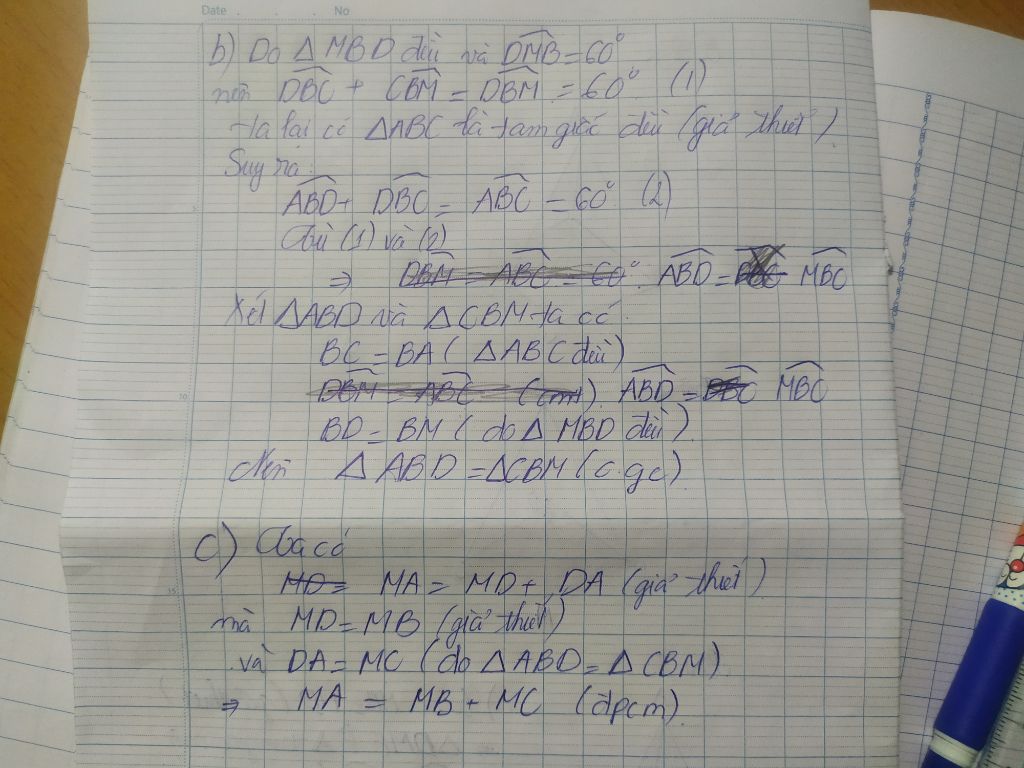 Date No
b) Do △ MBD đều và DMB = 60°
nên DBC + CBM = DBM = 60° (1)
ta lại có △ABC là tam giác đều (giả thiết)
Suy ra:
ABD + DBC = ABC = 60° (2)
Từ (1) và (2)
⇒ DBM = ABC = 60°. ABD = MBC
Xét △ABD và △CBM ta có:
BC = BA ( △ABC đều)
DBM = ABC (cmt). ABD = DBC MBC
BD = BM ( do △ MBD đều)
Nên △ ABD = △CBM (c.g.c)
c) Ta có
MD = MA = MD + DA (giả thiết)
mà MD = MB (giả thiết)
và DA = MC (do △ABD = △CBM)
⇒ MA = MB + MC (đpcm)